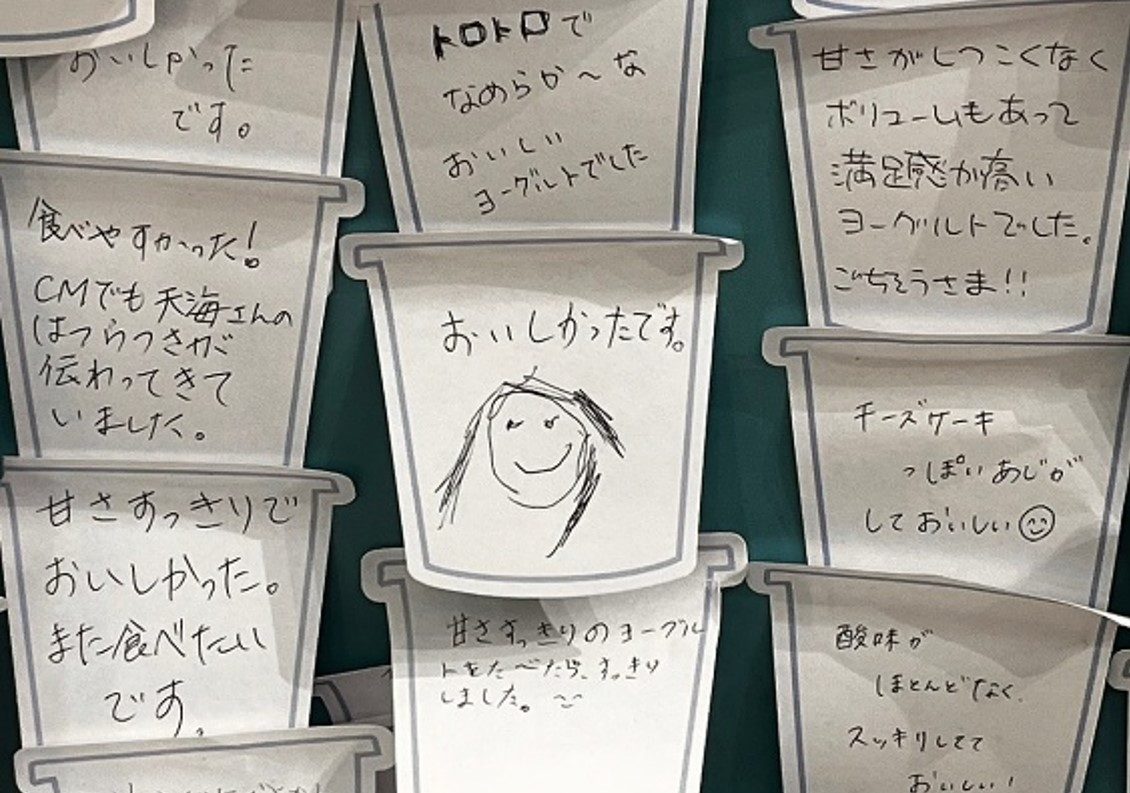 おいしかった
です。
食べやすかった!
CMでも天海さんの
はつらつさが
伝わってきて
いました。
甘さすっきりで
おいしかった。
また食べたい
です。
トロトロで
なめらか〜な
おいしい
ヨーグルトでした
おいしかったです。
甘さすっきりのヨーグル
トをたべたら、すっきり
しました。
甘さがしつこくなく
ボリュームもあって
満足感が高い
ヨーグルトでした。
ごちそうさま!!
チーズケーキ
っぽいあじが
しておいしい
酸味が
ほとんどなく、
スッキリしてて
おいしい!